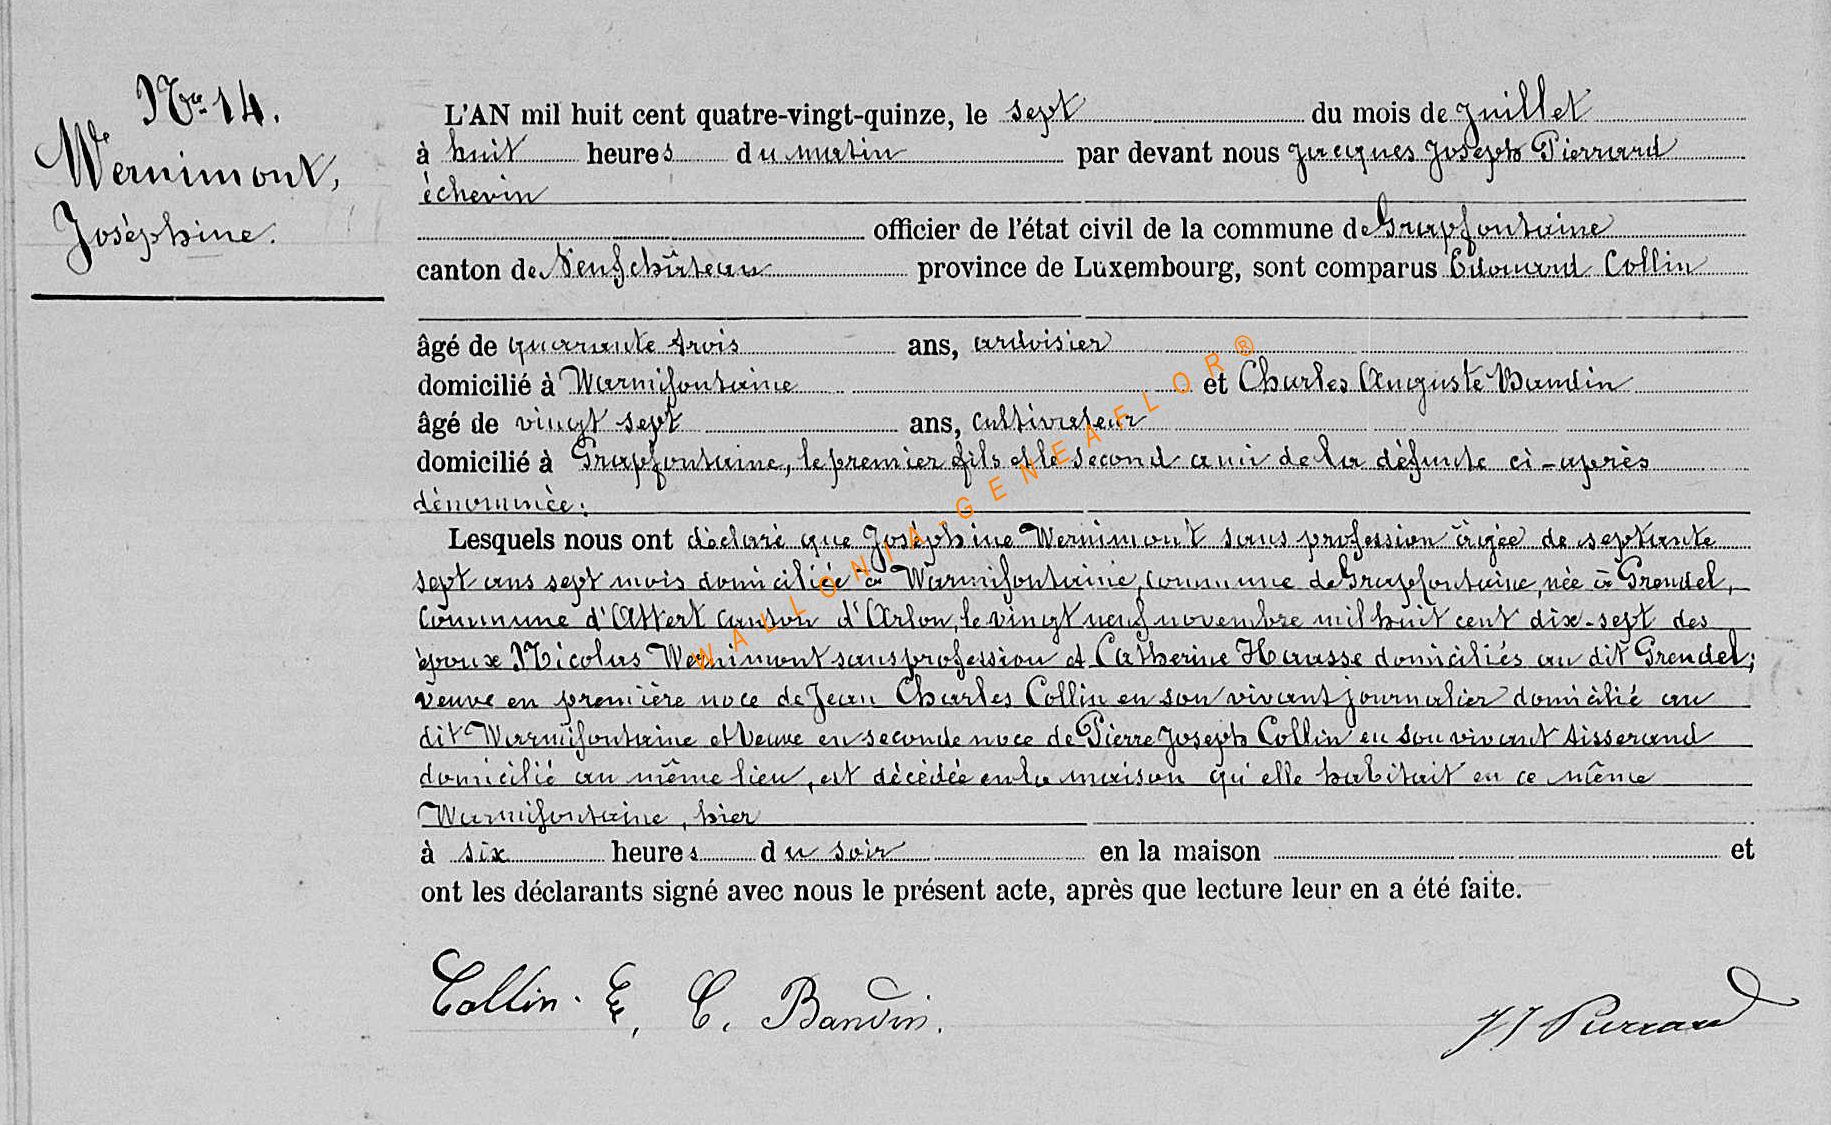 No 14.
Wernimont,
Joséphine.
L'AN mil huit cent quatre-vingt-quinze, le sept du mois de Juillet
à huit heures du matin par devant nous Jacques Joseph Pierrard
échevin
officier de l'état civil de la commune de Grapfontaine
canton de Neufchâteau province de Luxembourg, sont comparus Edouard Collin
âgé de quarante trois ans, ardoisier
domicilié à Warmifontaine et Charles Auguste Baudin
âgé de vingt sept ans, cultivateur
domicilié à Grapfontaine, le premier fils et le second ami de la défunte ci-après
dénommée:
Lesquels nous ont déclaré que Joséphine Wernimont sans profession âgée de septante
sept ans sept mois domiciliée à Warmifontaine, commune de Grapfontaine, née à Grendel,
commune d'Attert canton d'Arlon, le vingt neuf novembre mil huit cent dix-sept des
époux Nicolas Wernimont sans profession et Catherine Hausse domiciliés au dit Grendel;
veuve en première noce de Jean Charles Collin en son vivant journalier domicilié au
dit Warmifontaine et veuve en seconde noce de Pierre Joseph Collin en son vivant tisserand
domicilié au même lieu, est décédée en la maison qu'elle habitait en ce même
Warmifontaine, hier
à six heures du soir en la maison et
ont les déclarants signé avec nous le présent acte, après que lecture leur en a été faite.
Collin. E, C. Baudin. JJ Pierrard
WALLONIA-GENEAFLOR®